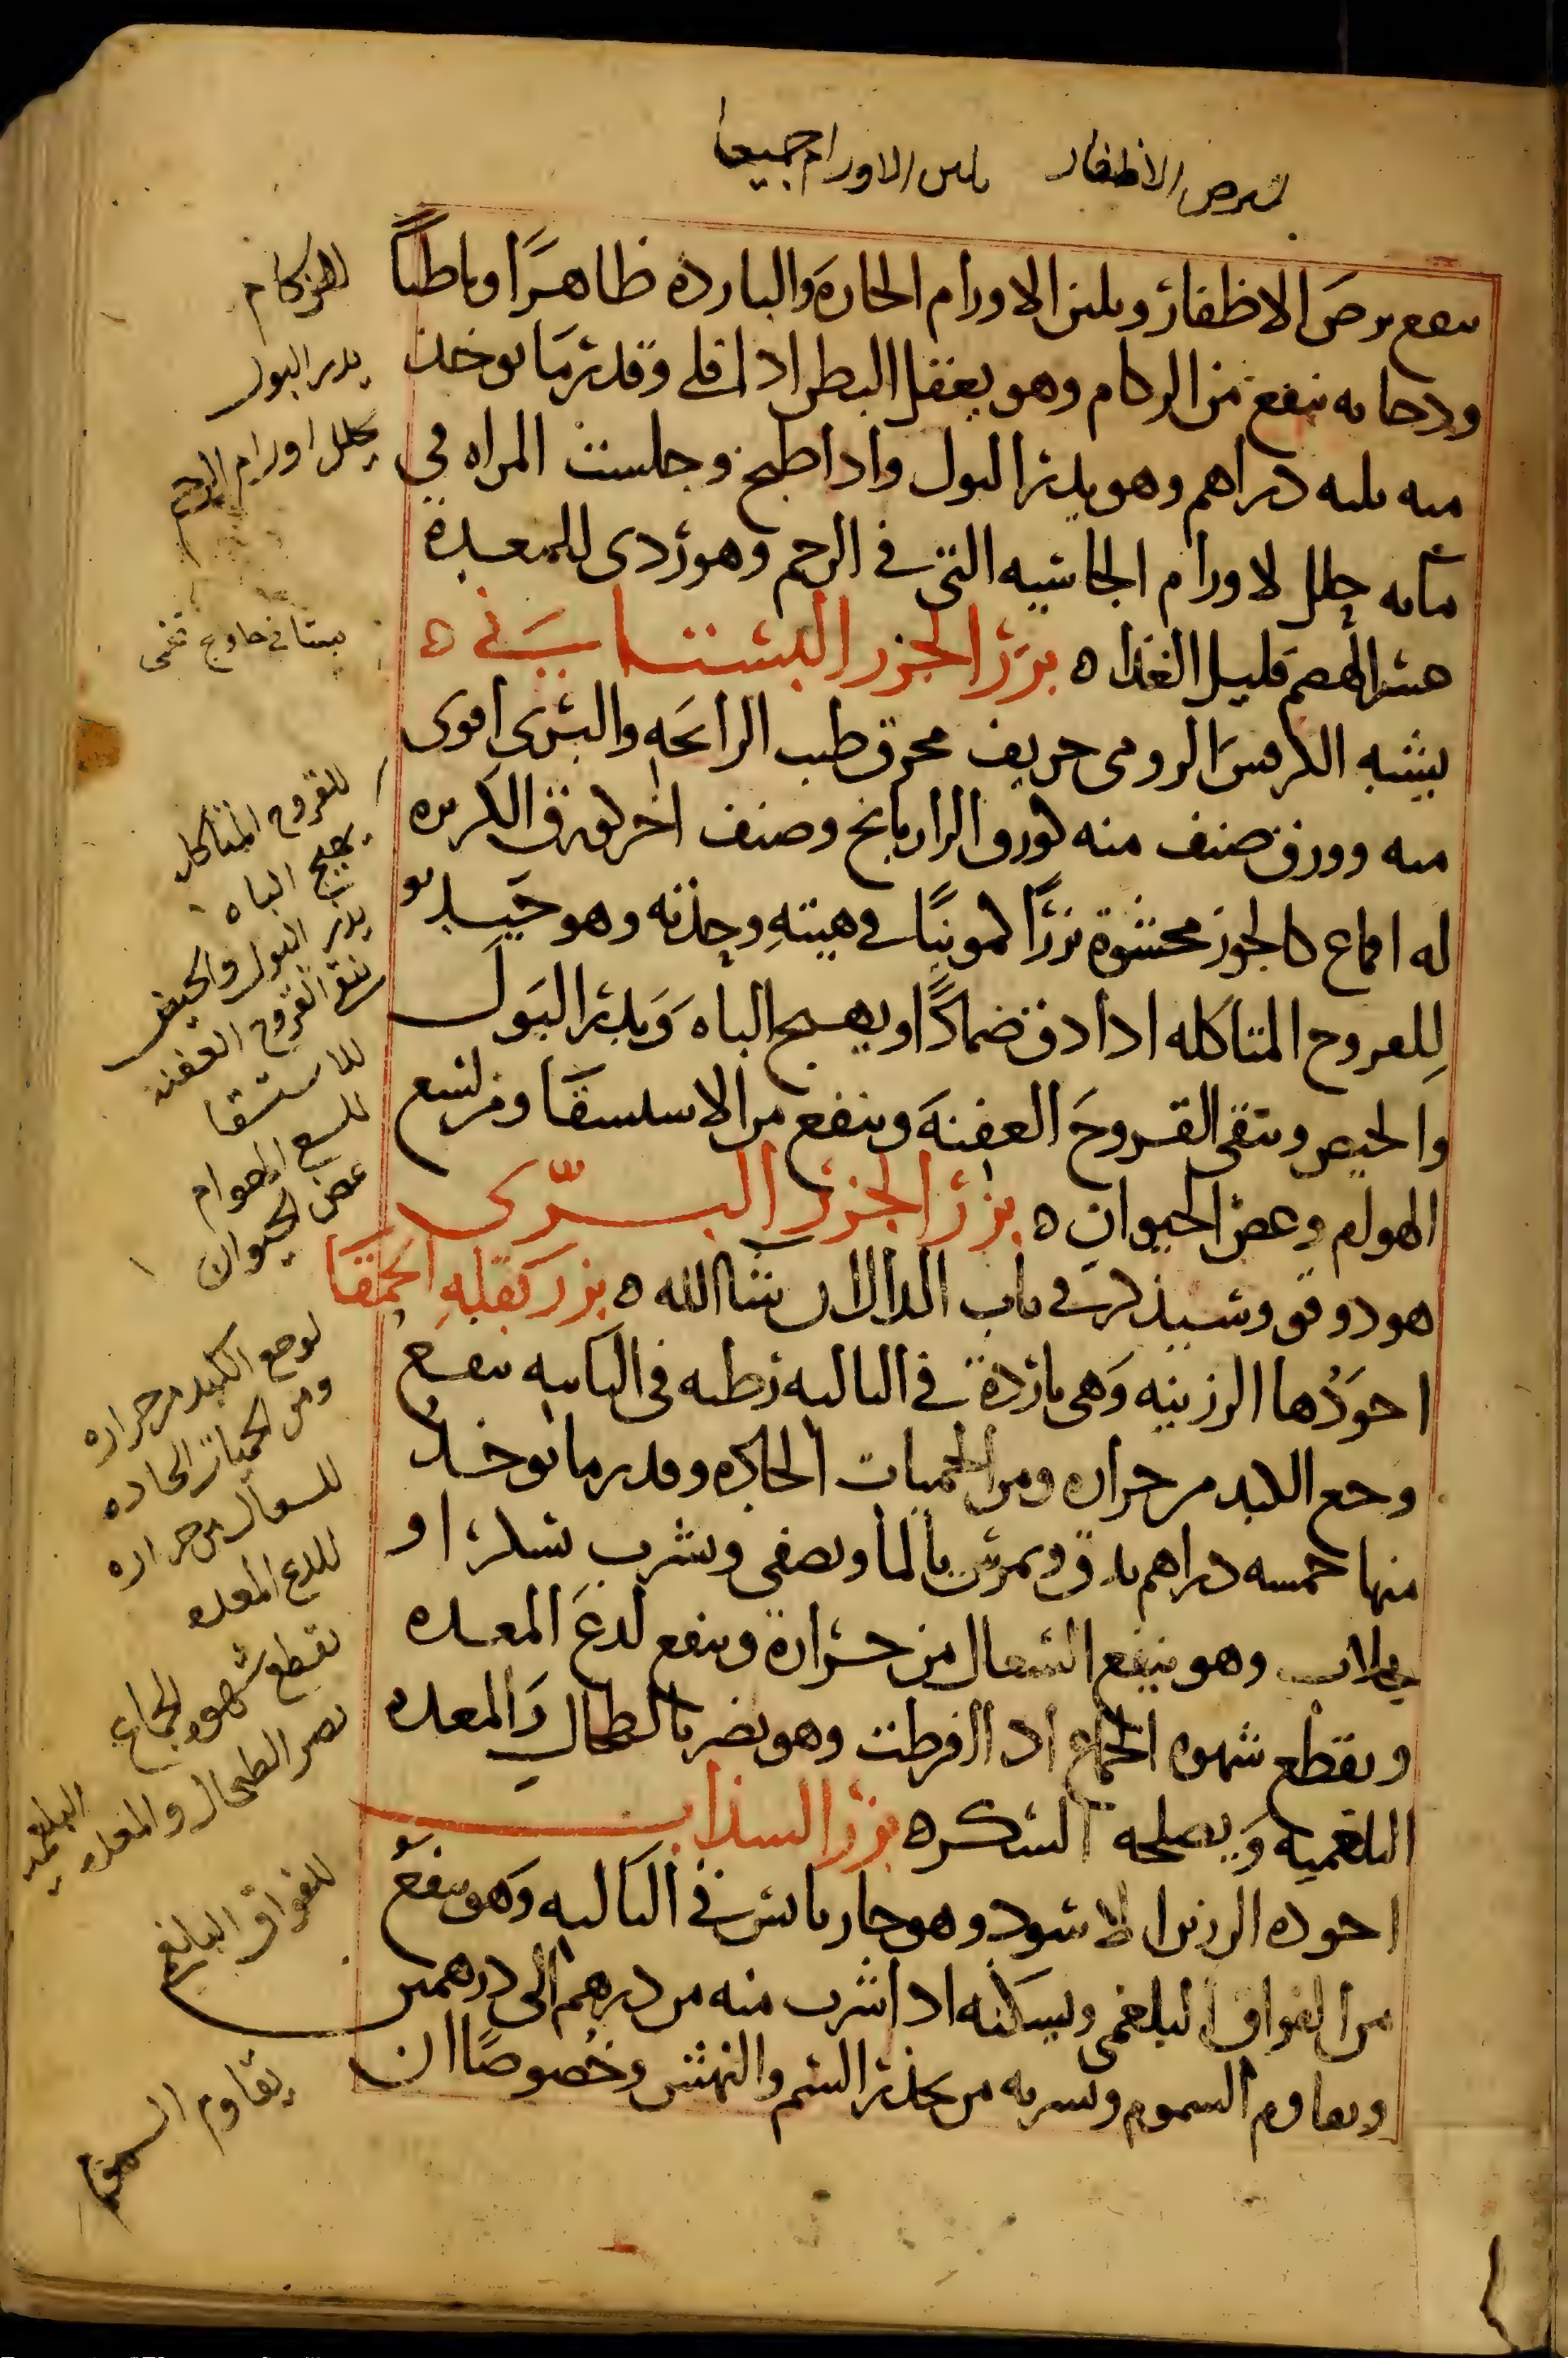 لبرص الاظفار يلين الاورام جميعا
ينفع برص الاظفار ويلين الاورام الحارة والباردة ظاهرًا وباطنًا
ودخانه ينفع من الزكام وهو يعقل البطن اذا قلي وقدر ما يوخذ
منه ثلثه دراهم وهو يدر البول واذا طبخ وجلست المراه في
مايه حلل الاورام الجاسيه التي في الرحم وهو ردي للمعدة
عسر الهضم قليل الغذا ه بزر الجزر البستاني ه
يشبه الكرفس الرومي حريف محرق طيب الرايحه والبري اقوى
منه وورق صنف منه كورق الرازيانج وصنف اخر كورق الكزبره
له اقماع كالجوز محشوة بزرًا كمونيًا في هيئته وحدته وهو جيد
للقروح المتاكله اذا دق ضمادًا ويهيج الباه ويدر البول
والحيض وينقي القروح العفنة وينفع من الاستسقا ومن لسع
الهوام وعض الحيوان ه بزر الجزر البرّي
هو دوقو وسيذكر في باب الدال ان شا الله ه بزر بقله الحمقا
اجودها الرزينه وهي باردة في الثالثه رطبه في الثانيه ينفع
وجع الكبد من حراره ومن الحميات الحاده وقدر ما يوخذ
منها خمسه دراهم يدق ويمرس بالما ويصفى ويشرب بسكر او
بجلاب وهو ينفع السعال من حرارة وينفع لدغ المعده
ويقطع شهوه الجماع اذا افرطت وهو يضر بالطحال والمعده
البلغميه ويصلحه السكر ه بزر السذاب
اجوده الرزين الاسود وهو حار يابس في الثالثه وهو ينفع
من الفواق البلغمي ويسكنه اذا شرب منه من درهم الى درهمين
ويقاوم السموم ويشربه من يحذر السم والنهش وخصوصًا ان
للزكام
يدر البول
يحلل اورام الرحم
للقروح المتاكله
يهيج الباه
يدر البول والحيض
ينقي القروح العفنه
للاستسقا
للسع الهوام
عض الحيوان
لوجع الكبد من حراره
ومن الحميات الحاده
للسعال من حراره
للدغ المعده
يقطع شهوه الجماع
يضر الطحال والمعده البلغميه
للفواق البلغمي
يقاوم السموم